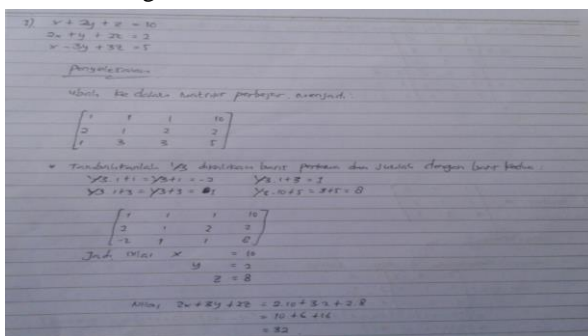 x + 2y + z = 10
2x + y + 2z = 2
x - 3y + 3z = 5
penyelesaian
ubah ke dalam matriks perbesar menjadi:
1 1 1 10
2 1 2 2
1 3 3 5
1/3 dikalikan baris pertama dan dengan baris kedua:
1/3 . 1 + 3 = 1
1/3 . 10 + 5 = 3 + 5 = 8
1 1 1 10
2 1 2 2
-2 1 1 8
Jadi nilai x = 10
y = 2
z = 8
Nilai 2x + 3y + 2z = 2.10 + 3.2 + 2.8
= 10 + 6 + 16
= 32